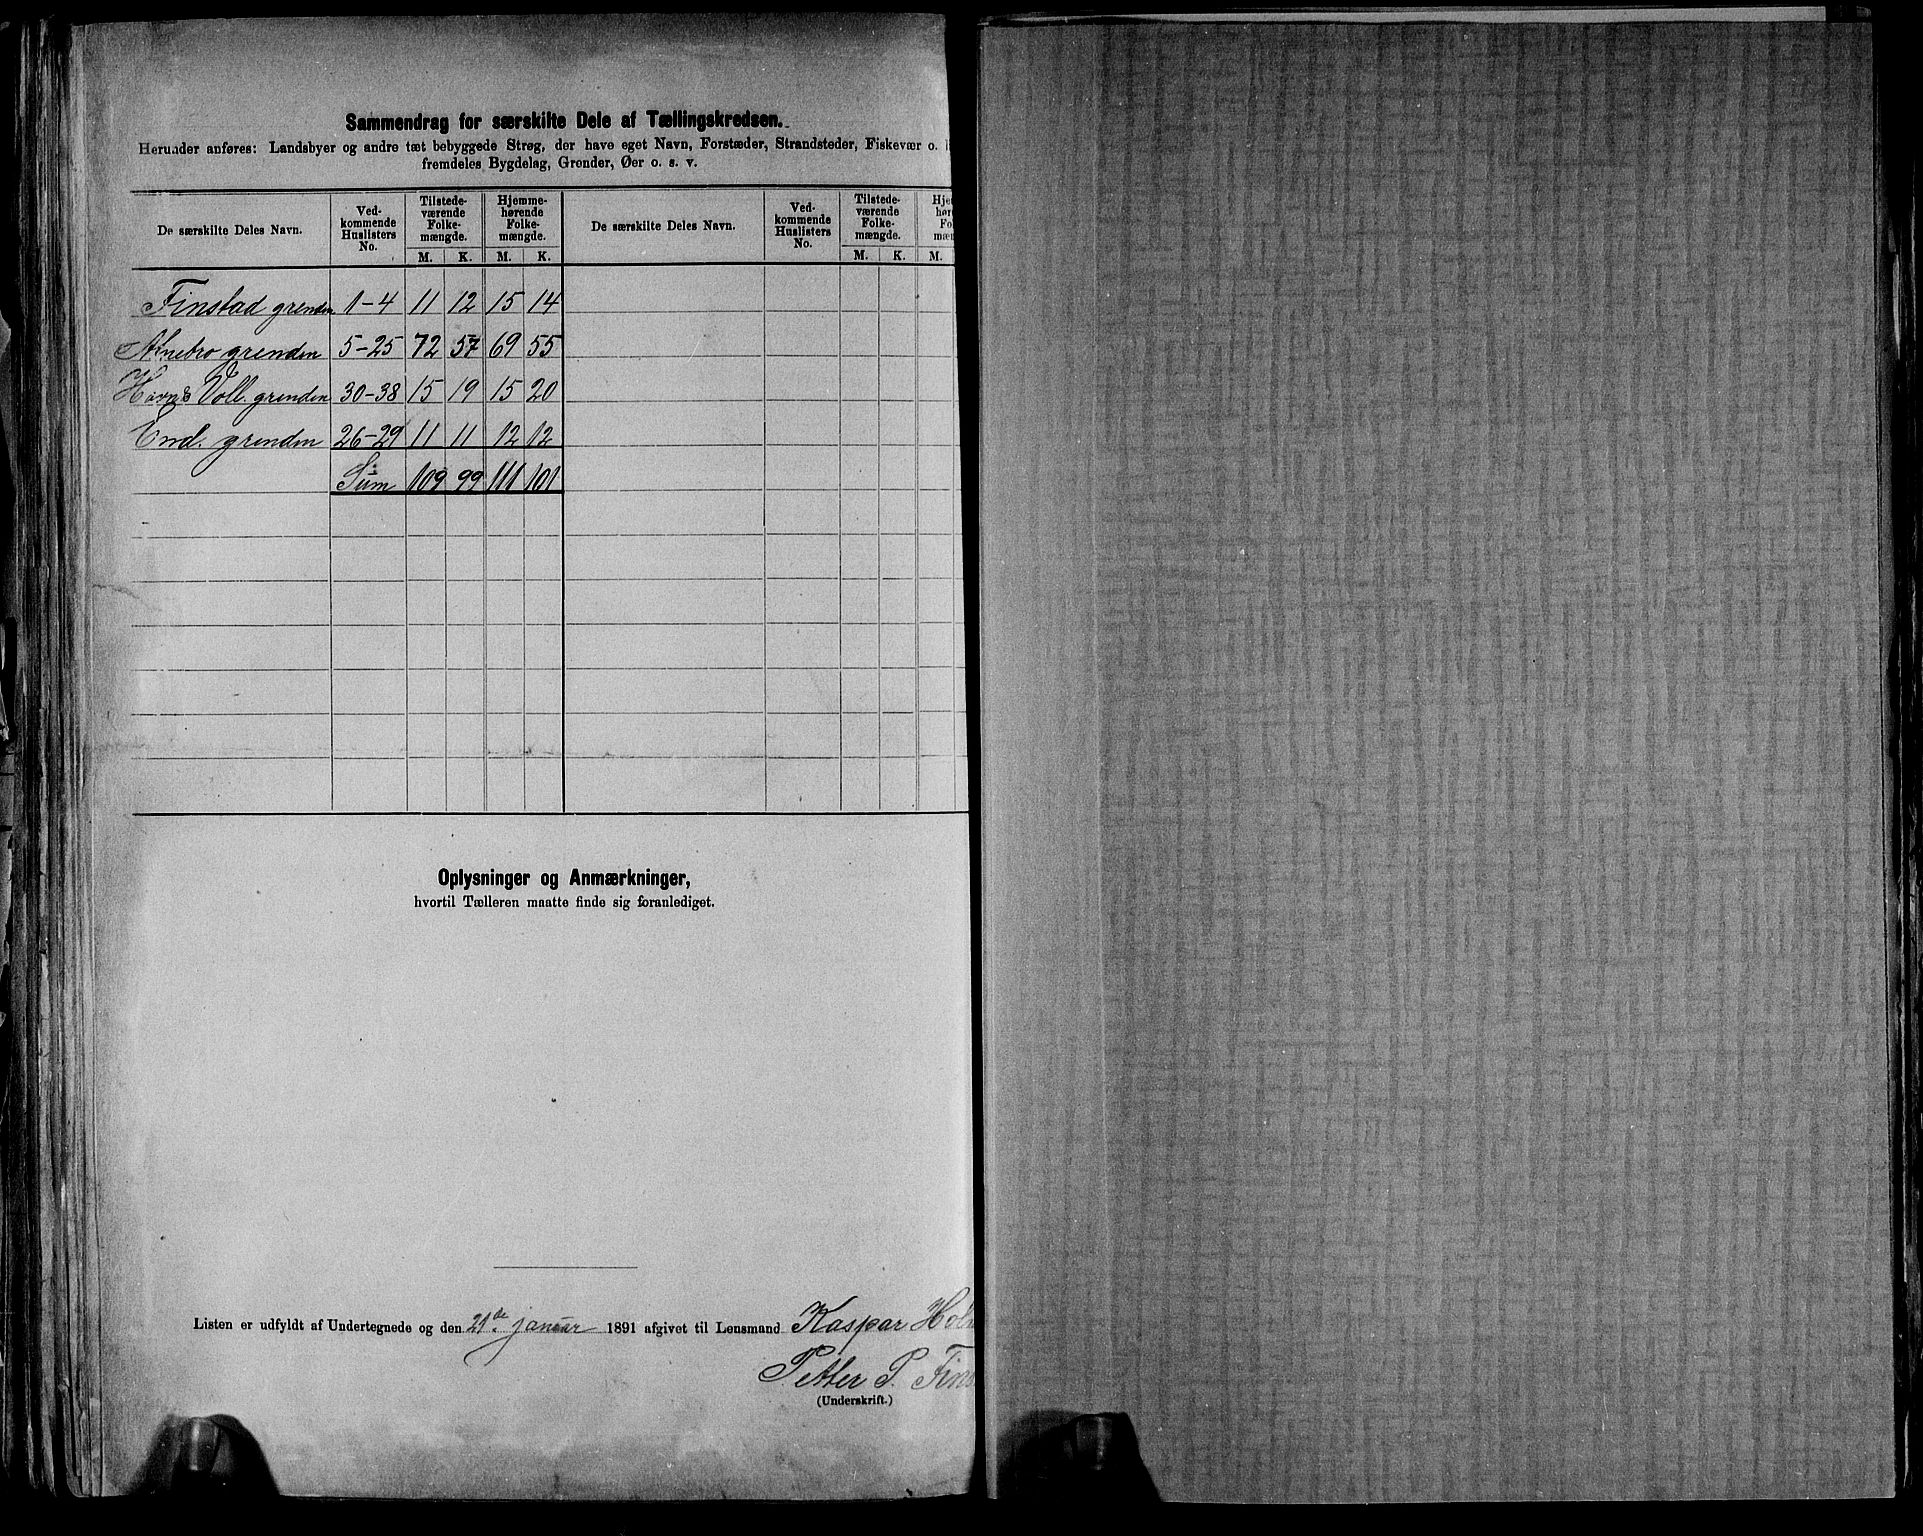 Sammendrag for særskilte Dele af Tællingskredsen.
Herunder anføres: Landsbyer og andre tæt bebyggede Strøg, der have eget Navn, Forstæder, Strandsteder, Fiskevær o. l
fremdeles Bygdelag, Grender, Øer o. s. v.
De særskilte Deles Navn. Ved-kommende Huslisters No. Tilstede-værende Folke-mængde. Hjemme-hørende Folke-mængde. De særskilte Deles Navn. Ved-kommende Huslisters No. Tilstede-værende Folke-mængde. Hj
M. K. M. K. M. K. M.
Finstad grenden 1-4 11 12 15 14
grenden 5-25 72 57 69 55
Voll. grenden 30-38 15 19 15 20
grenden 26-29 11 11 12 12
Sum 109 99 111 101
Oplysninger og Anmærkninger,
hvortil Tælleren maatte finde sig foranlediget.
Listen er udfyldt af Undertegnede og den 21de januar 1891 afgivet til Lensmand Kaspar Hol
Petter P. Fins
(Underskrift.)